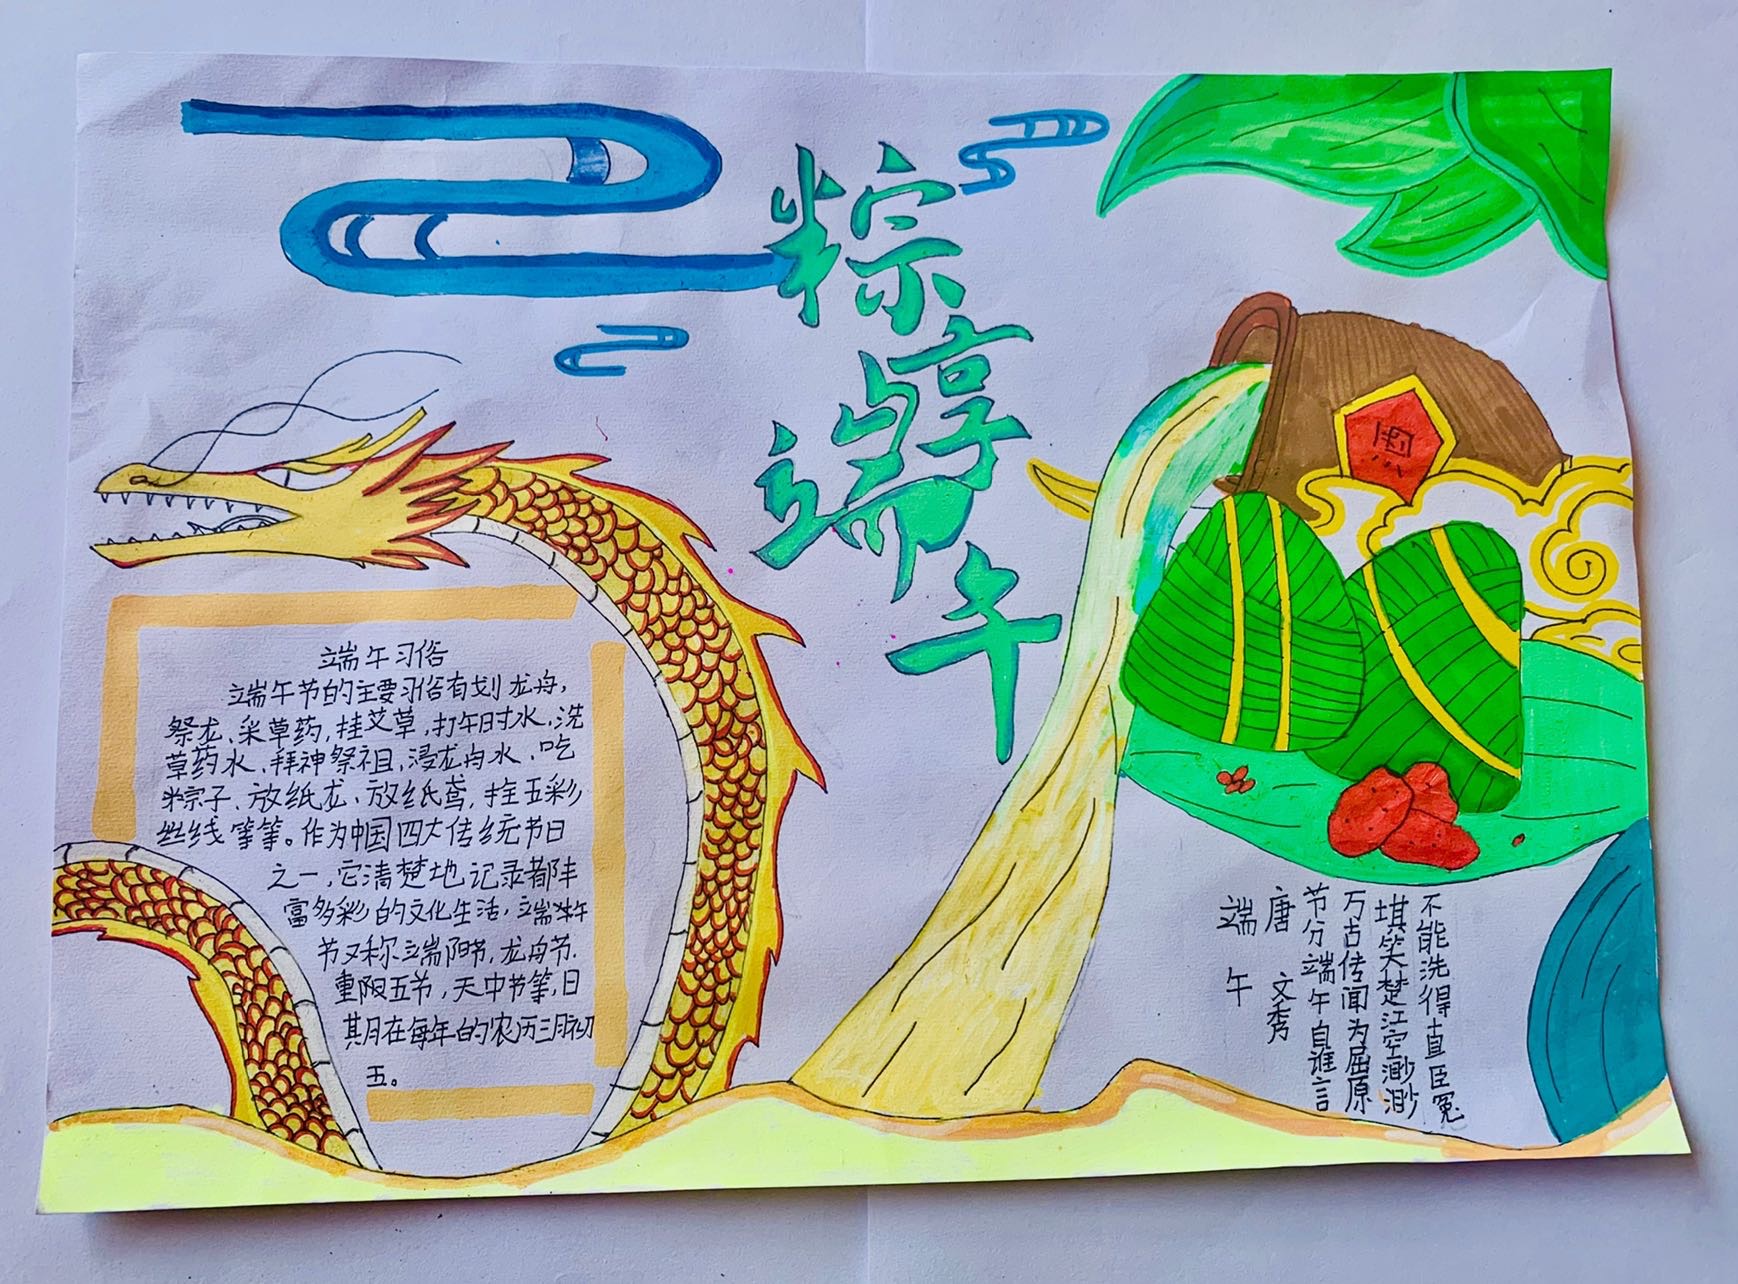 粽享端午
端午习俗
端午节的主要习俗有划龙舟,
祭龙、采草药,挂艾草,打午时水、洗
草药水、拜神祭祖,浸龙舟水、吃
粽子、放纸龙、放纸鸢,拴五彩
丝线等等。作为中国四大传统节日
之一,它清楚地记录着丰
富多彩的文化生活,端午
节又称端阳节,龙舟节、
重阳五节,天中节等,日
其月在每年的农历三月初
五。
端午
唐 文秀
节分端午自谁言
万古传闻为屈原
堪笑楚江空渺渺
不能洗得直臣冤